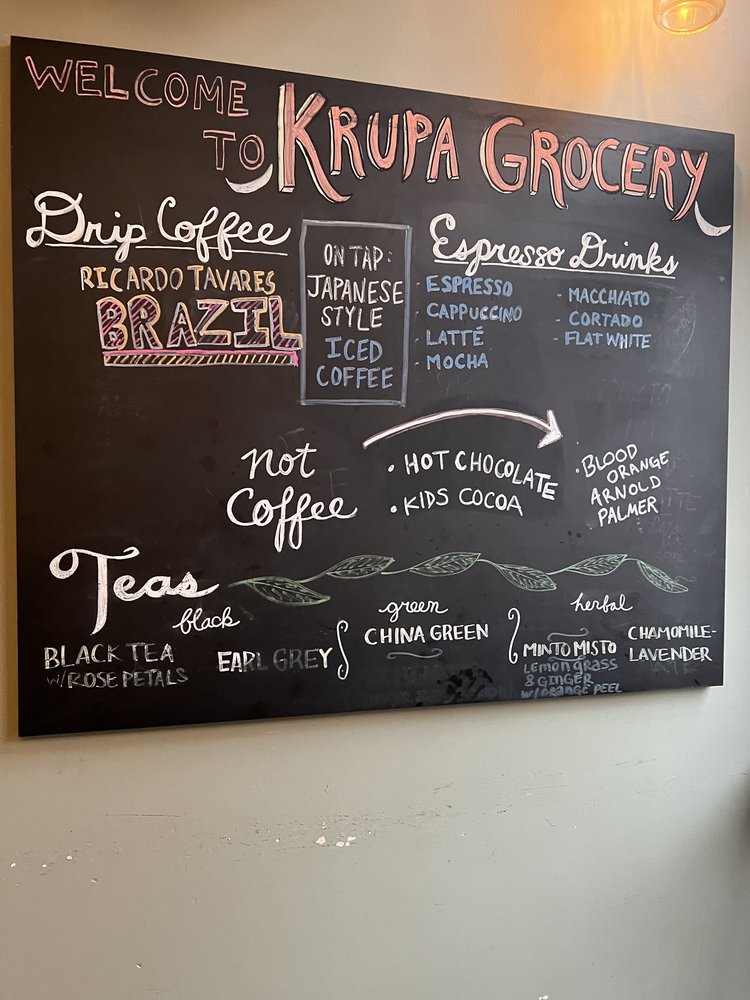 WELCOME
TO KRUPA GROCERY
Drip Coffee
RICARDO TAVARES
BRAZIL
ON TAP:
JAPANESE
STYLE
ICED
COFFEE
Espresso Drinks
- ESPRESSO
- CAPPUCCINO
- LATTÉ
- MOCHA
- MACCHIATO
- CORTADO
- FLAT WHITE
Not
Coffee
• HOT CHOCOLATE
• KIDS COCOA
• BLOOD
ORANGE
ARNOLD
PALMER
Teas
black
BLACK TEA
W/ROSE PETALS
EARL GREY
green
CHINA GREEN
herbal
MINTO MISTO
Lemongrass
& GINGER
W/ORANGE PEEL
CHAMOMILE-
LAVENDER